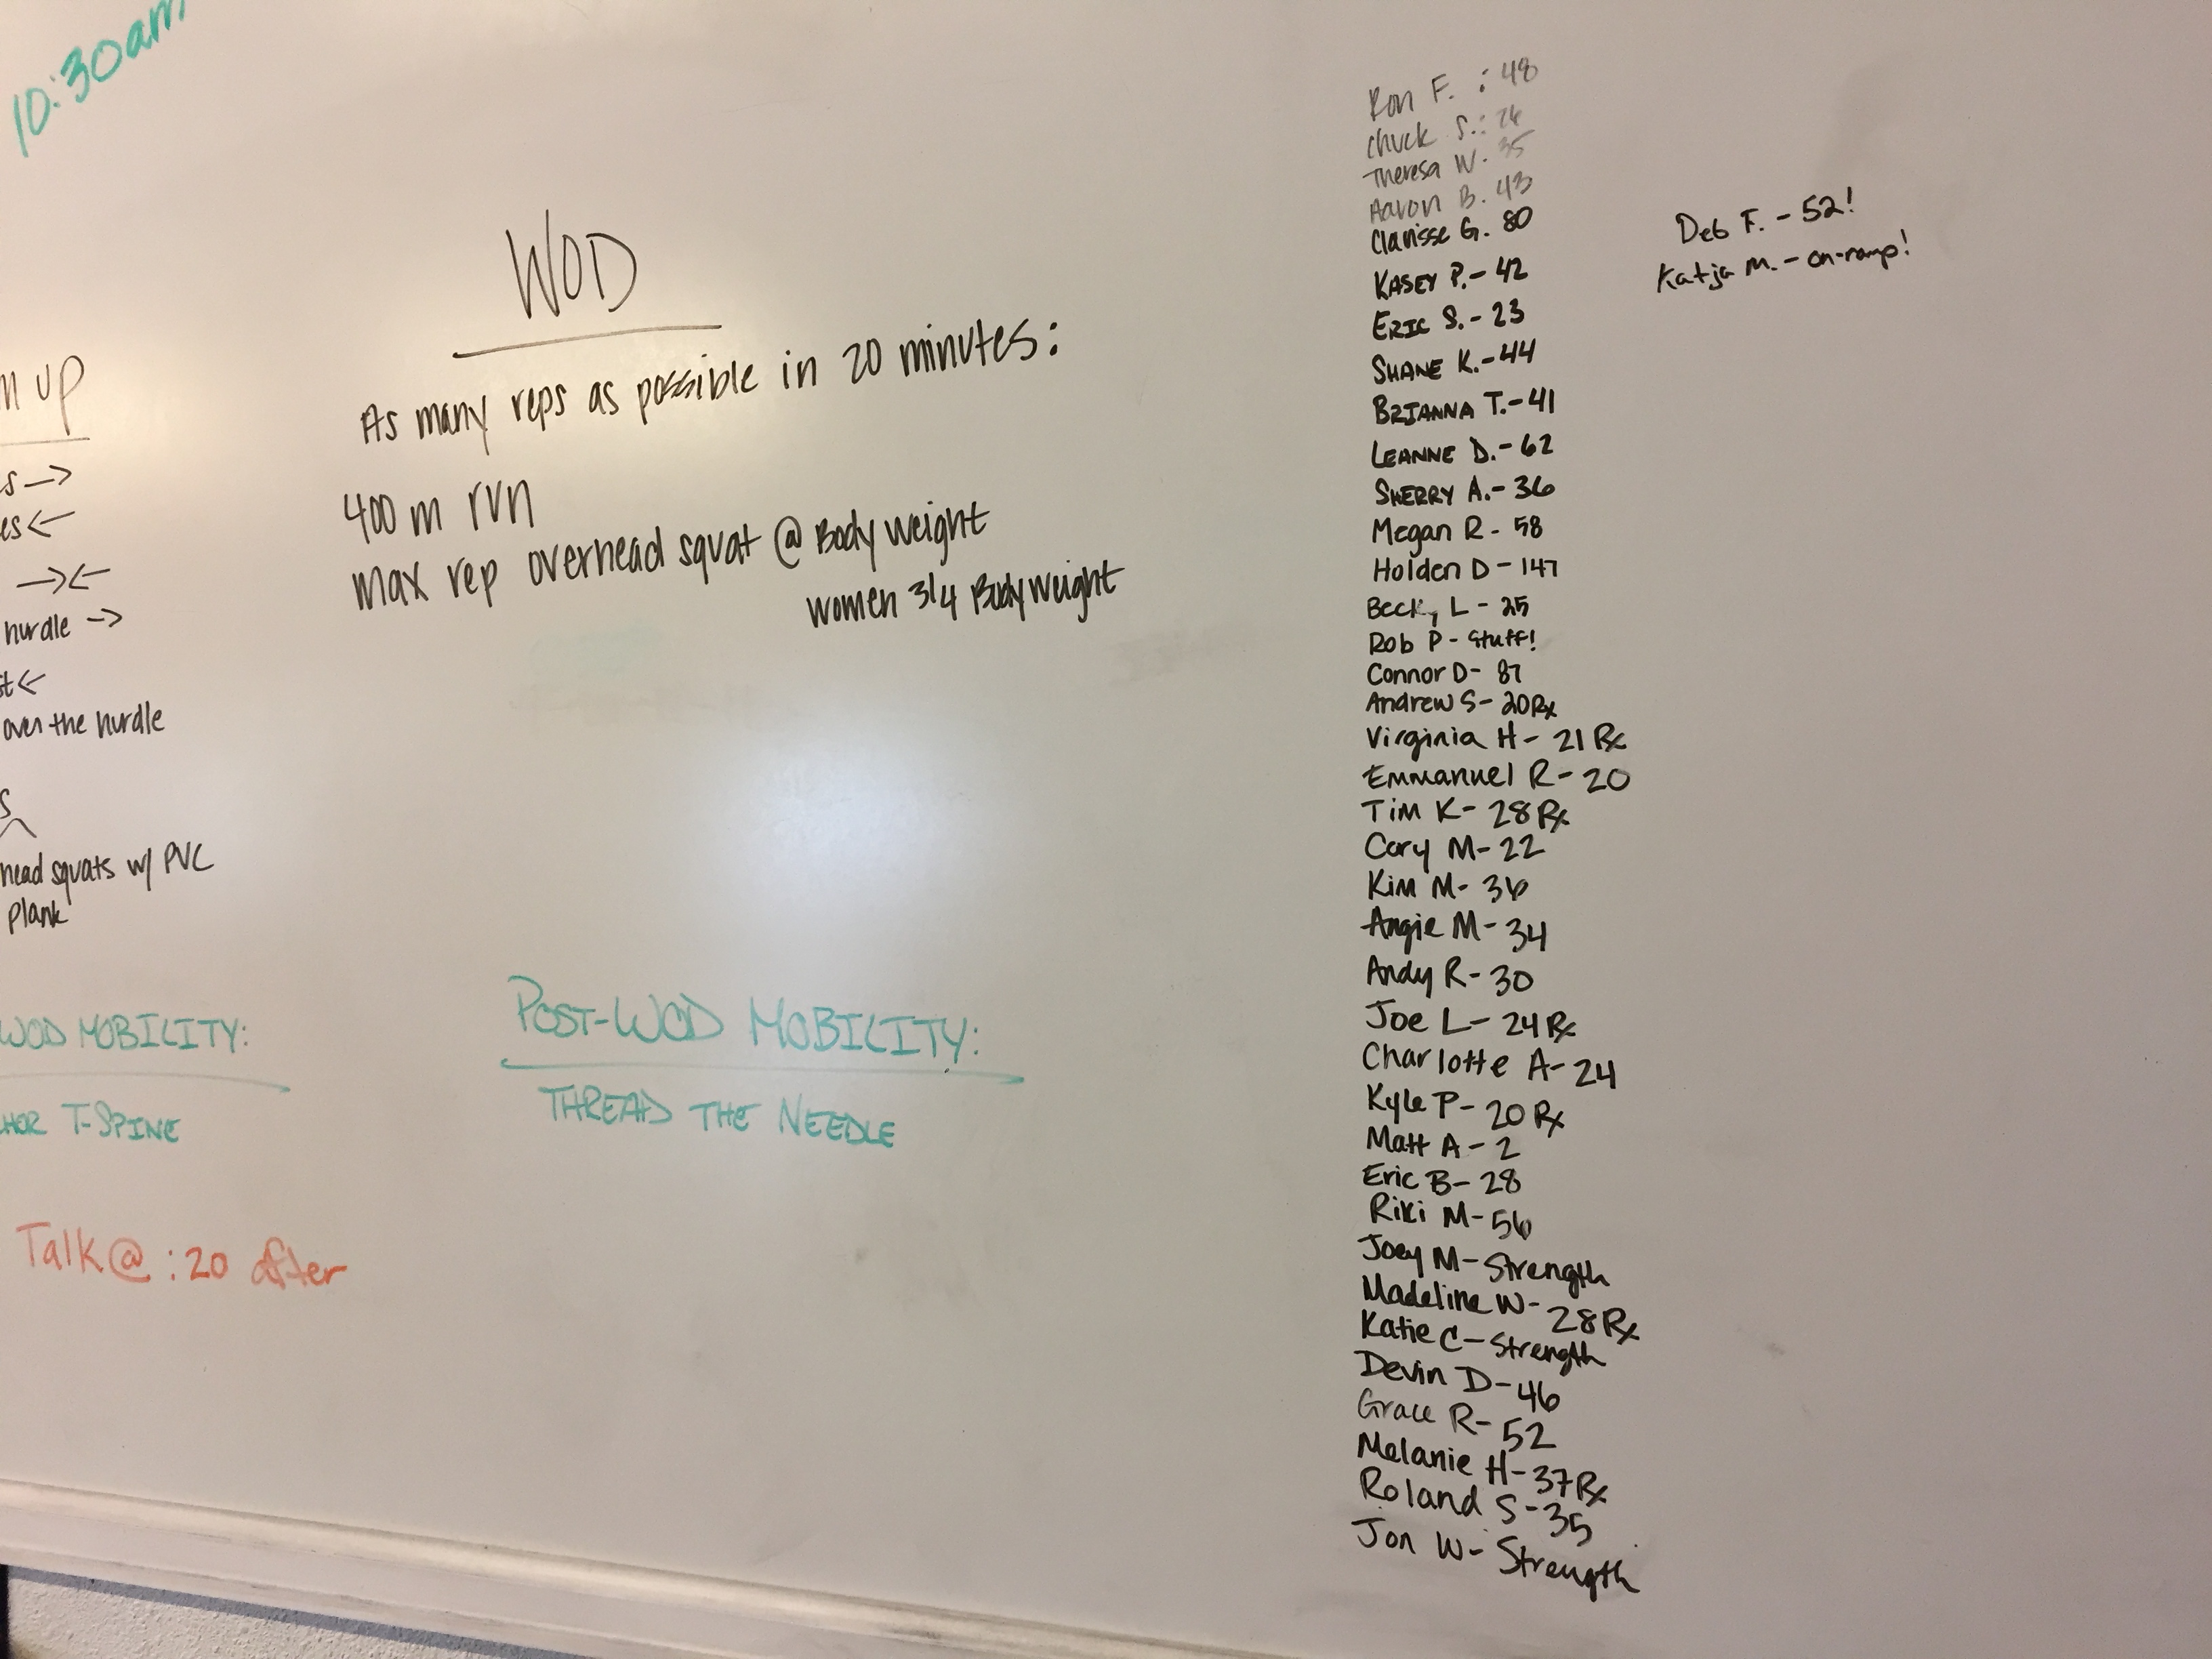 10:30am
m up
s →
es ←
→←
hurdle →
st ←
over the hurdle
s
head squats w/ PVC
plank
WOD MOBILITY:
CHER T-SPINE
Talk @ :20 after
WOD
As many reps as possible in 20 minutes:
400 m run
max rep overhead squat @ Body weight
women 3/4 Bodyweight
POST-WOD MOBILITY:
THREAD THE NEEDLE
Ron F. : 48
Chuck S. : 26
Theresa W. 35
Aaron B. 43
Clarisse G. 80
KASEY P. - 42
ERIC S. - 23
SHANE K. - 44
BRIANNA T. - 41
LEANNE D. - 62
SHERRY A. - 36
Megan R - 58
Holden D - 147
Becky L - 25
Rob P - Stuff!
Connor D - 87
Andrew S - 20 Rx
Virginia H - 21 Rx
Emmanuel R - 20
Tim K - 28 Rx
Cory M - 22
Kim M - 36
Angie M - 34
Andy R - 30
Joe L - 24 Rx
Charlotte A - 24
Kyle P - 20 Rx
Matt A - 2
Eric B - 28
Riki M - 56
Joey M - Strength
Madeline W - 28 Rx
Katie C - Strength
Devin D - 46
Grace R - 52
Melanie H - 37 Rx
Roland S - 35
Jon W - Strength
Deb F. - 52!
Katja M. - on-ramp!